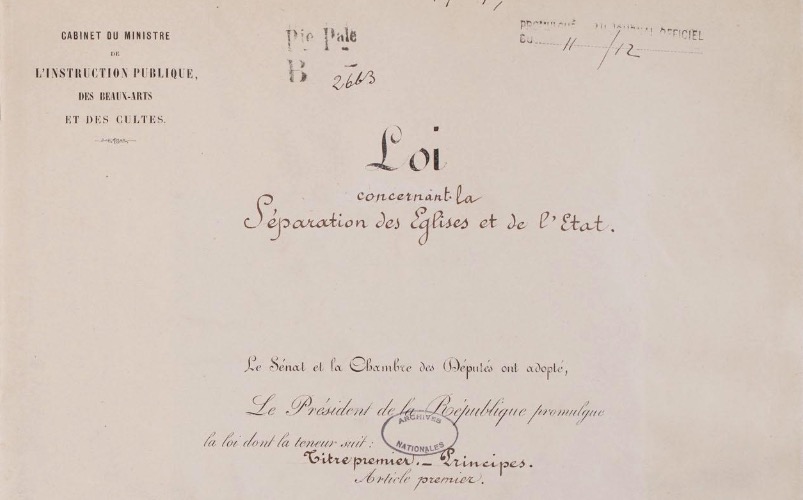 CABINET DU MINISTRE
DE
L'INSTRUCTION PUBLIQUE,
DES BEAUX-ARTS
ET DES CULTES.
Pie Pale
B 2663
PROMULGUÉ AU JOURNAL OFFICIEL
DU 11/12
Loi
concernant la
Séparation des Eglises et de l'Etat.
Le Sénat et la Chambre des Députés ont adopté,
Le Président de la République promulgue
la loi dont la teneur suit :
ARCHIVES
NATIONALES
Titre premier. — Principes.
Article premier.